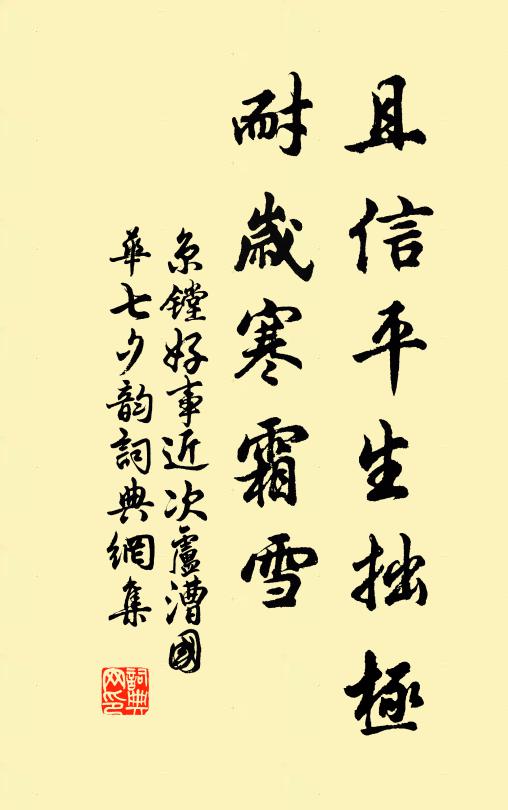 且信平生拙極
耐歲寒霜雪
京鏜好事近次盧漕國
華七夕韵詞典網集
詞典網印